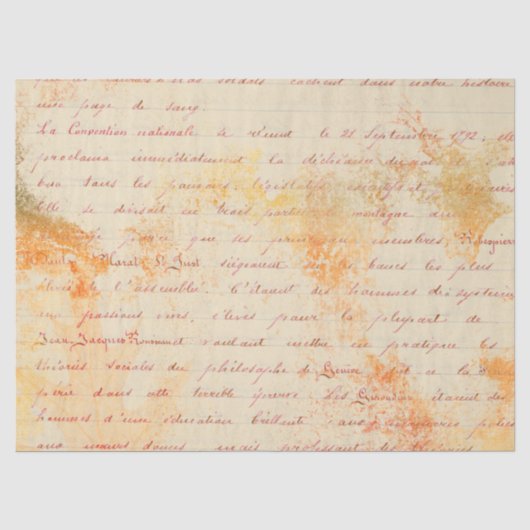 que les lauriers de nos soldats cachent dans notre histoire
une page de sang.
La Convention nationale se réunit le 21 Septembre 1792, elle
proclama immédiatement la déchéance du roi et
bua tous les pouvoirs: législatif,
Elle se divisait en trois partis: montagne
principaux membres, Robespierre
Danton, Marat, St Just siégeaient sur les bancs les plus
élevés de l'assemblée. C'étaient des hommes de système
aux passions vives, élevés pour la plupart de
Jean-Jacques Rousseau et voulant mettre en pratique les
théories sociales du philosophe de Genève
périr dans cette terrible épreuve. Les Girondins étaient des
hommes d'une éducation brillante aux manières polies
aux mœurs douces mais professant des théories